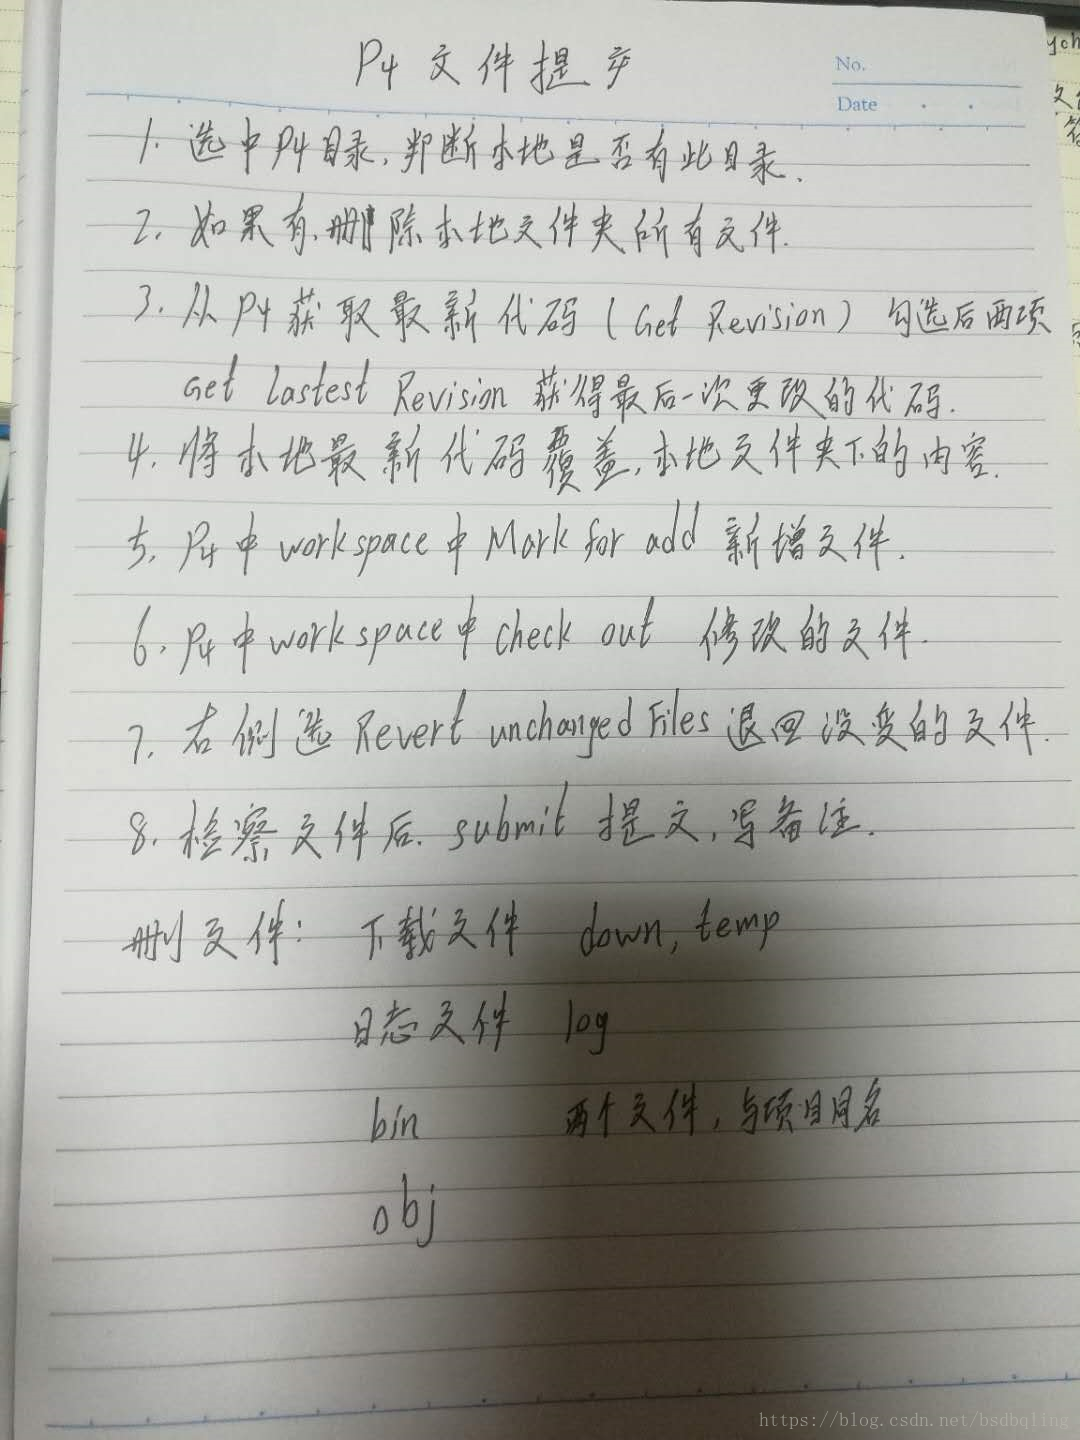 P4 文件提交
No.
Date
1. 选中P4目录,判断本地是否有此目录.
2. 如果有,删除本地文件夹所有文件.
3. 从P4获取最新代码(Get Revision) 勾选后两项
Get lastest Revision 获得最后一次更改的代码.
4. 将本地最新代码覆盖,本地文件夹下的内容.
5. P4中workspace中Mark for add 新增文件.
6. P4中workspace中check out 修改的文件.
7. 右侧选 Revert unchanged Files 退回没变的文件.
8. 检察文件后. submit 提交,写备注.
删文件: 下载文件 down, temp
日志文件 log
bin 两个文件,与项目同名
obj
https://blog.csdn.net/bsdbqling